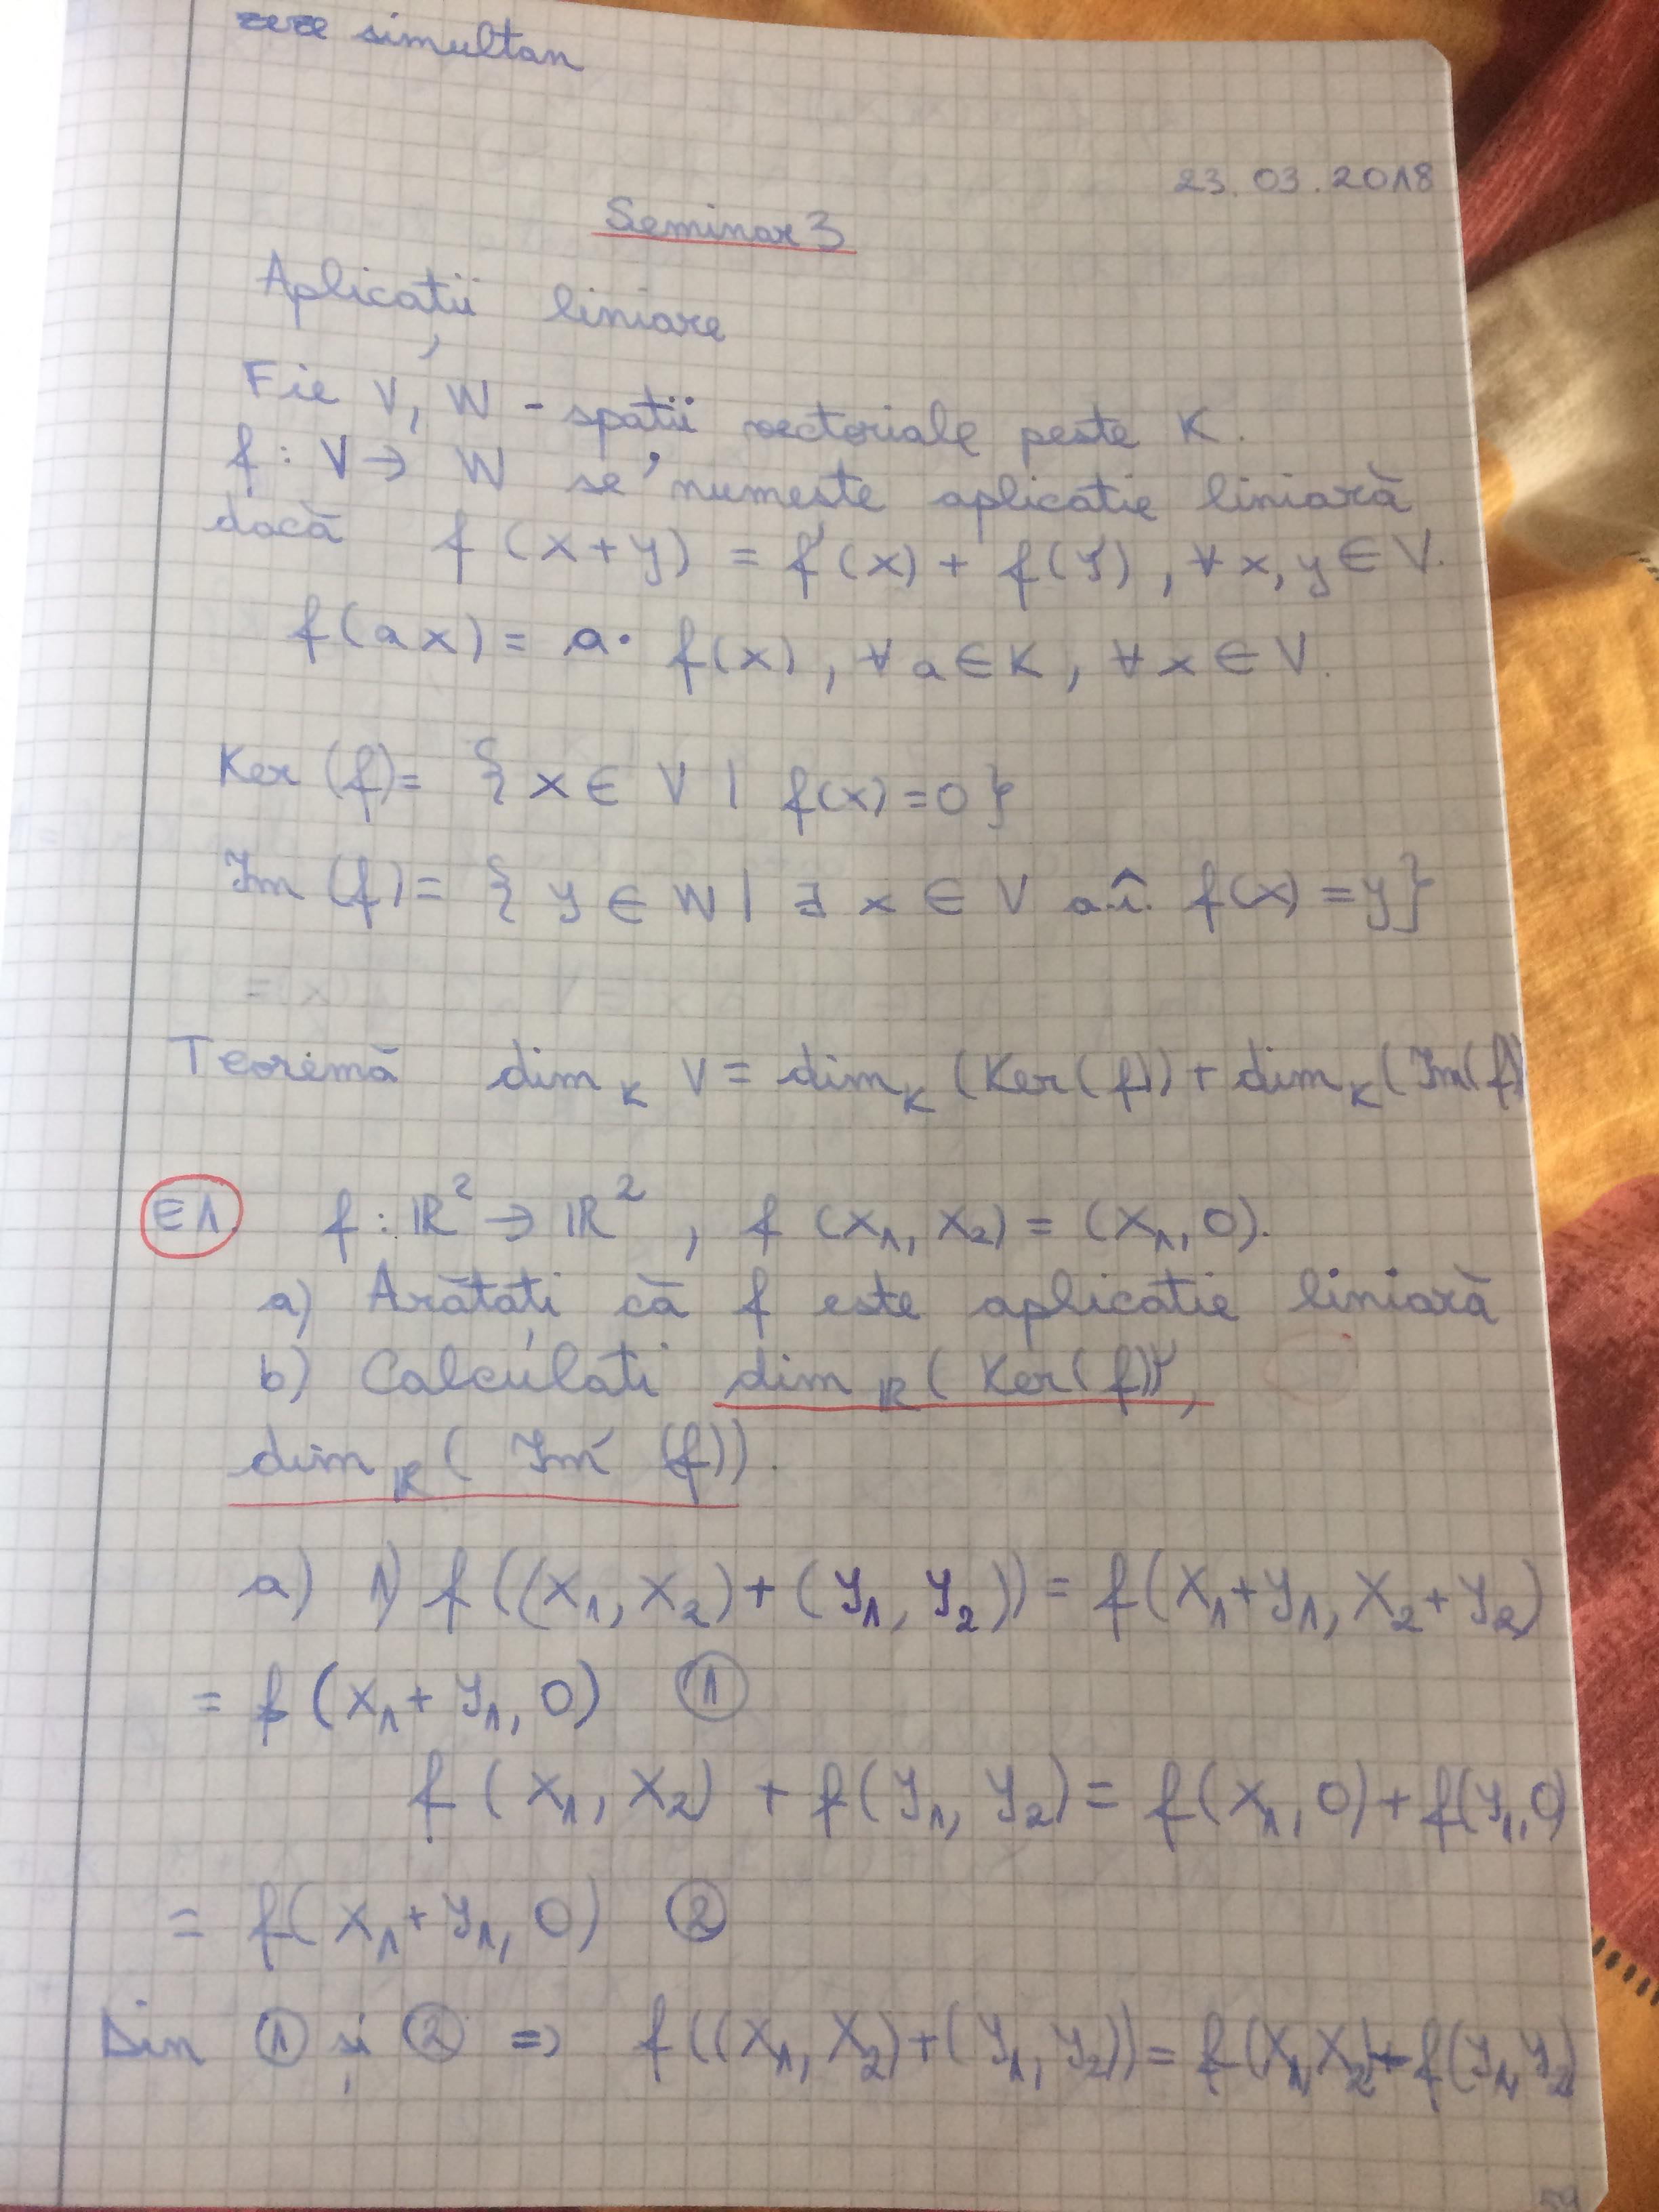 zere simultan
23.03.2018
Seminar 3
Aplicații liniare
Fie V, W - spații vectoriale peste K.
f : V → W se numește aplicație liniară
dacă f(x+y) = f(x) + f(y), ∀ x, y ∈ V.
f(ax) = a · f(x), ∀ a ∈ K, ∀ x ∈ V.
Ker (f) = { x ∈ V | f(x) = 0 }
Im (f) = { y ∈ W | ∃ x ∈ V a.î. f(x) = y }
Teoremă dim_K V = dim_K (Ker(f)) + dim_K (Im(f)
E1. f : ℝ² → ℝ², f (x₁, x₂) = (x₁, 0).
a) Arătați că f este aplicație liniară
b) Calculați dim_ℝ (Ker(f)),
dim_ℝ ( Im (f)).
a) 1) f ((x₁, x₂) + (y₁, y₂)) = f (x₁+y₁, x₂+y₂)
= f (x₁+y₁, 0) ①
f (x₁, x₂) + f(y₁, y₂) = f(x₁, 0) + f(y₁, 0)
= f(x₁+y₁, 0) ②
Din ① și ② => f((x₁, x₂)+(y₁, y₂)) = f(x₁, x₂)+f(y₁, y₂)